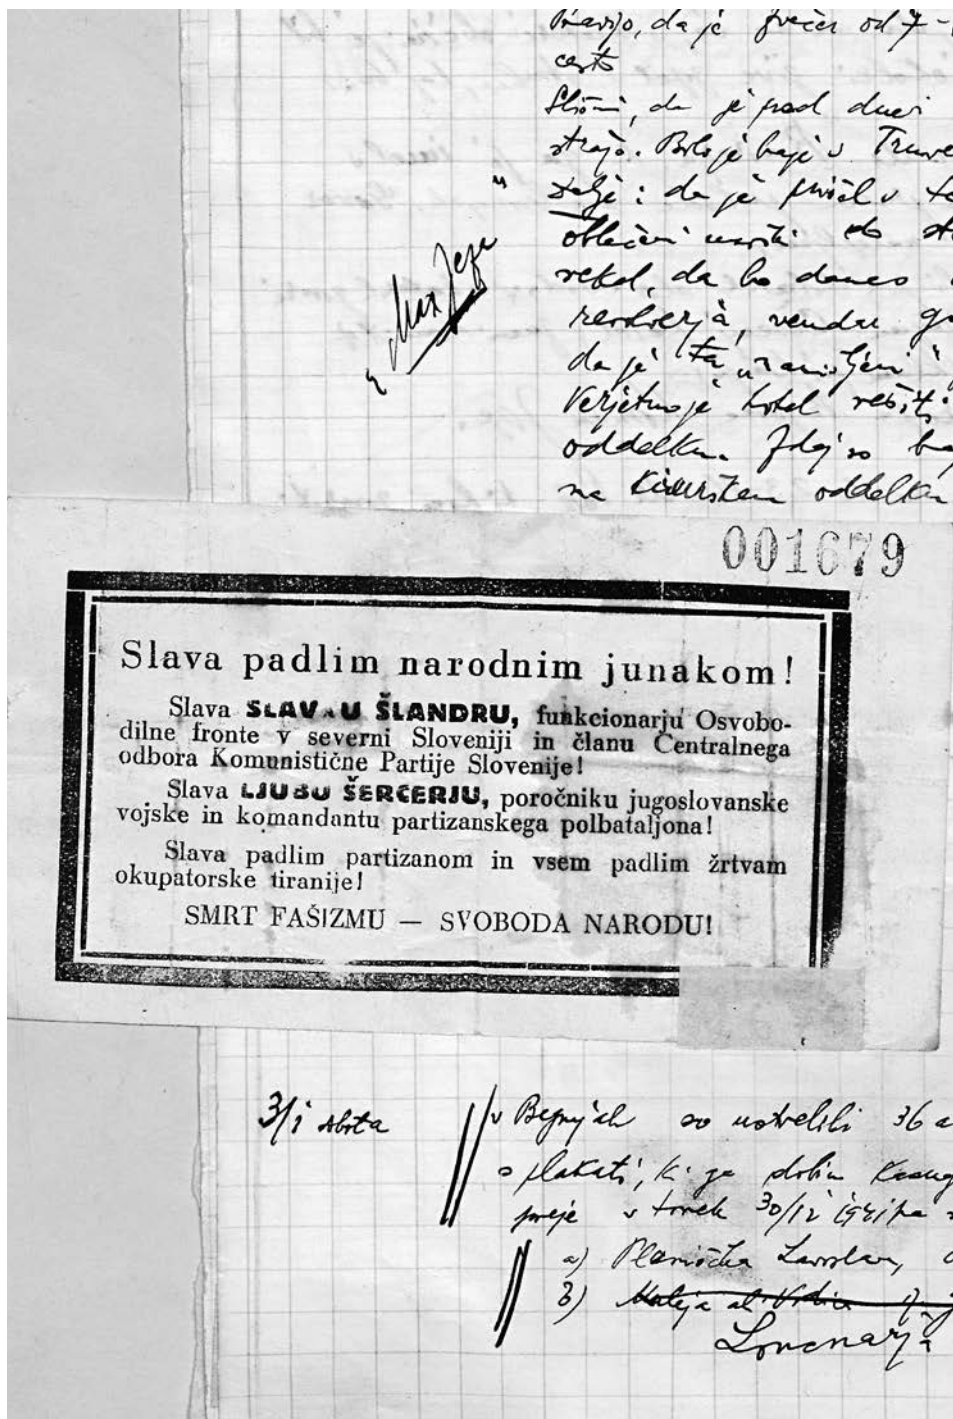 Pravijo, da je zvečer od 7-
cesto
Sliši, da je pred dnevi
stražo. Bilo je baje v
da je prišel v
oblečeni
rekel, da bo danes
revolverja, vendar
da je ta
Verjetno je hotel rešiti
oddelku. Zdaj so
na oddelku
"Max Jeza"
001679
Slava padlim narodnim junakom!
Slava SLAVKU ŠLANDRU, funkcionarju Osvobo-
dilne fronte v severni Sloveniji in članu Centralnega
odbora Komunistične Partije Slovenije!
Slava LJUBU ŠERCERJU, poročniku jugoslovanske
vojske in komandantu partizanskega polbataljona!
Slava padlim partizanom in vsem padlim žrtvam
okupatorske tiranije!
SMRT FAŠIZMU — SVOBODA NARODU!
3/I sobota
v Begnjah so ustrelili 36
o plakati, ki ga dobim
preje v torek 30/12 1941 pa
a)
b)
Loncnarja